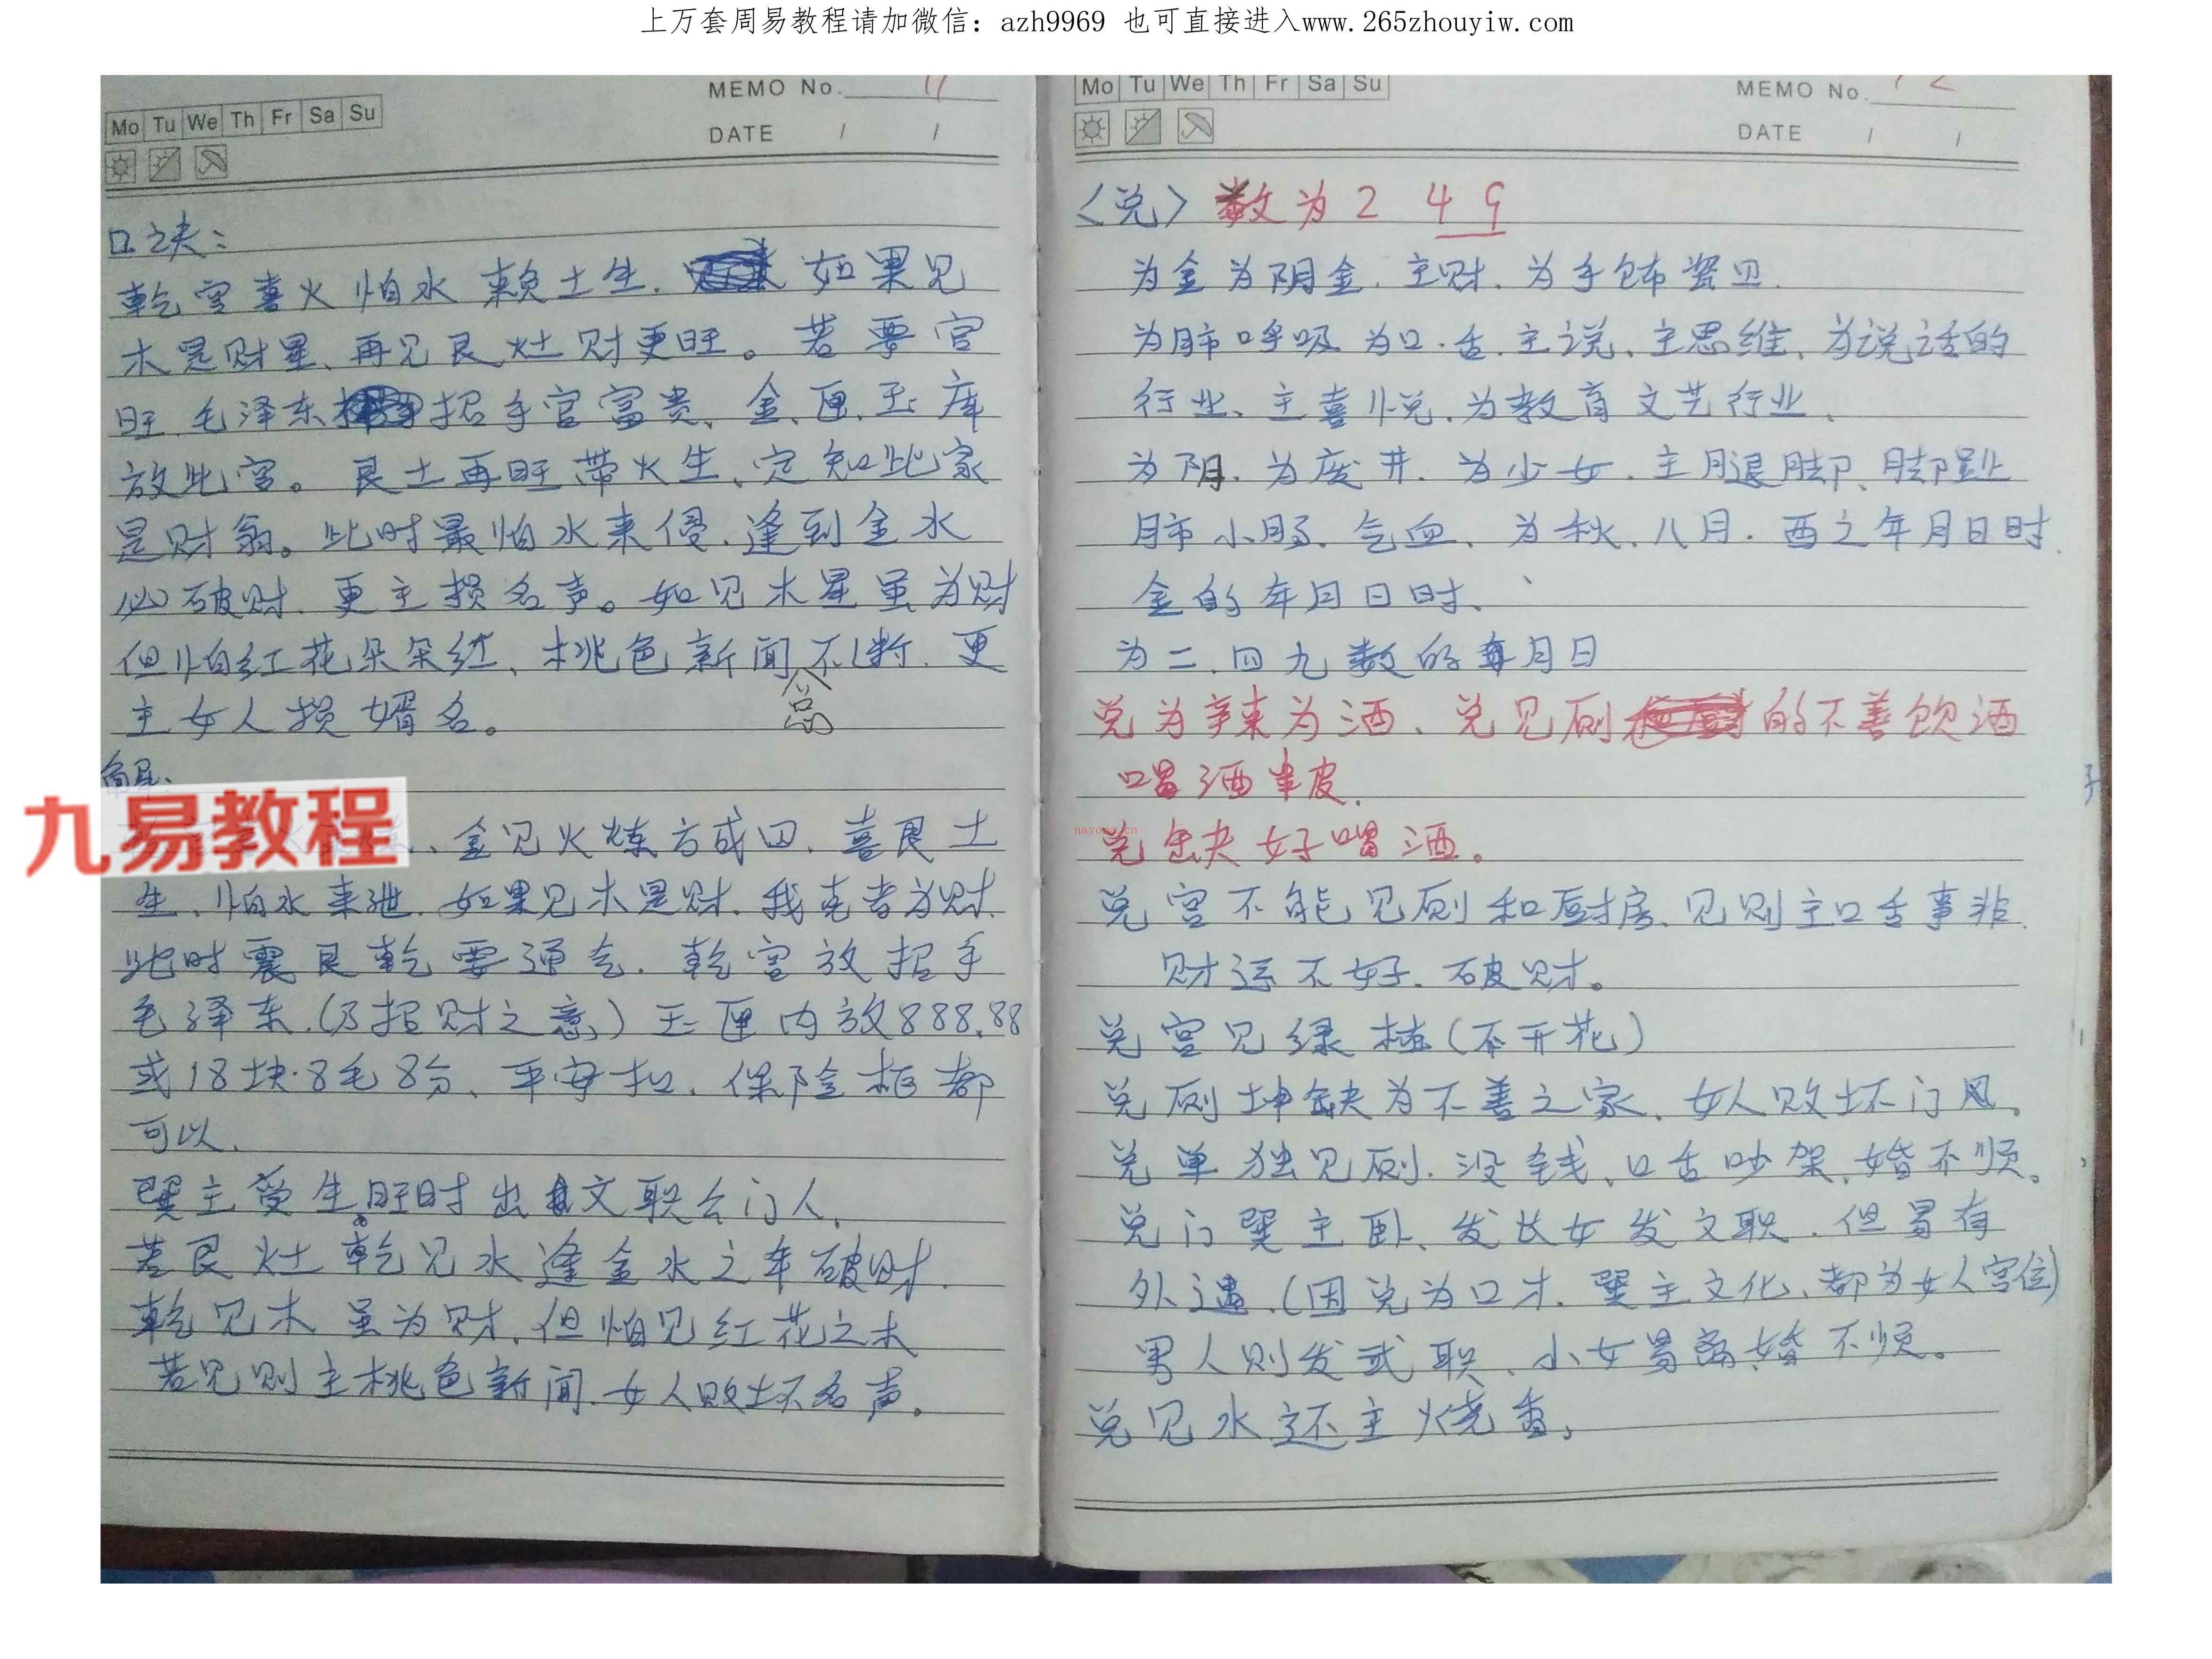 上万套周易教程请加微信：azh9969 也可直接进入www.265zhouyiw.com
MEMO No. 11
Mo Tu We Th Fr Sa Su
DATE / /
口诀：
乾宫喜火怕水赖土生. 如果见
木是财星、再见艮灶财更旺。若要官
旺.毛泽东招手官富贵、金、匣、玉库
放此宫。艮土再旺带火生、定知此家
是财翁。此时最怕水来侵.逢到金水
必破财.更主损名声。如见木星虽为财
但怕红花朵朵红、桃色新闻总不断.更
主女人损婿名。
解、
九易教程
、金见火炼方成四.喜艮土
生、怕水来泄.如果见木是财.我克者为财.
此时震艮乾要通气.乾宫放招手
毛泽东.(乃招财之意)玉匣内放888.88
或18块8毛8分、平安扣、保险柜都
可以.
巽主受生旺时出文职公门人.
若艮灶乾见水逢金水之年破财.
乾见木虽为财.但怕见红花之木
若见则主桃色新闻.女人败坏名声。
Mo Tu We Th Fr Sa Su
MEMO No. 12
DATE / /
〈兑〉数为2 4 9
为金为阴金.主财.为手饰
为肺呼吸为口.舌.主说、主思维、为说话的
行业、主喜悦.为教育文艺行业、
为阴.为废井.为少女.主腿脚、脚趾
肺小肠、气血、为秋、八月.酉之年月日时.
金的年月日时、
为二.四九数的年月日
兑为辛辣为酒、兑见厕的不善饮酒
喝酒
兑缺好喝酒。
nayona.cn
兑宫不能见厕和厨房、见则主口舌事非.
财运不好.破财。
兑宫见绿植(不开花)
兑厕坤缺为不善之家、女人败坏门风。
兑单独见厕.没钱、口舌吵架、婚不顺。
兑门巽主卧、发长女发文职.但易有
外遇.(因兑为口才.巽主文化、都为女人宫位)
男人则发武职、小女易离婚不顺。
兑见水还主烧香,